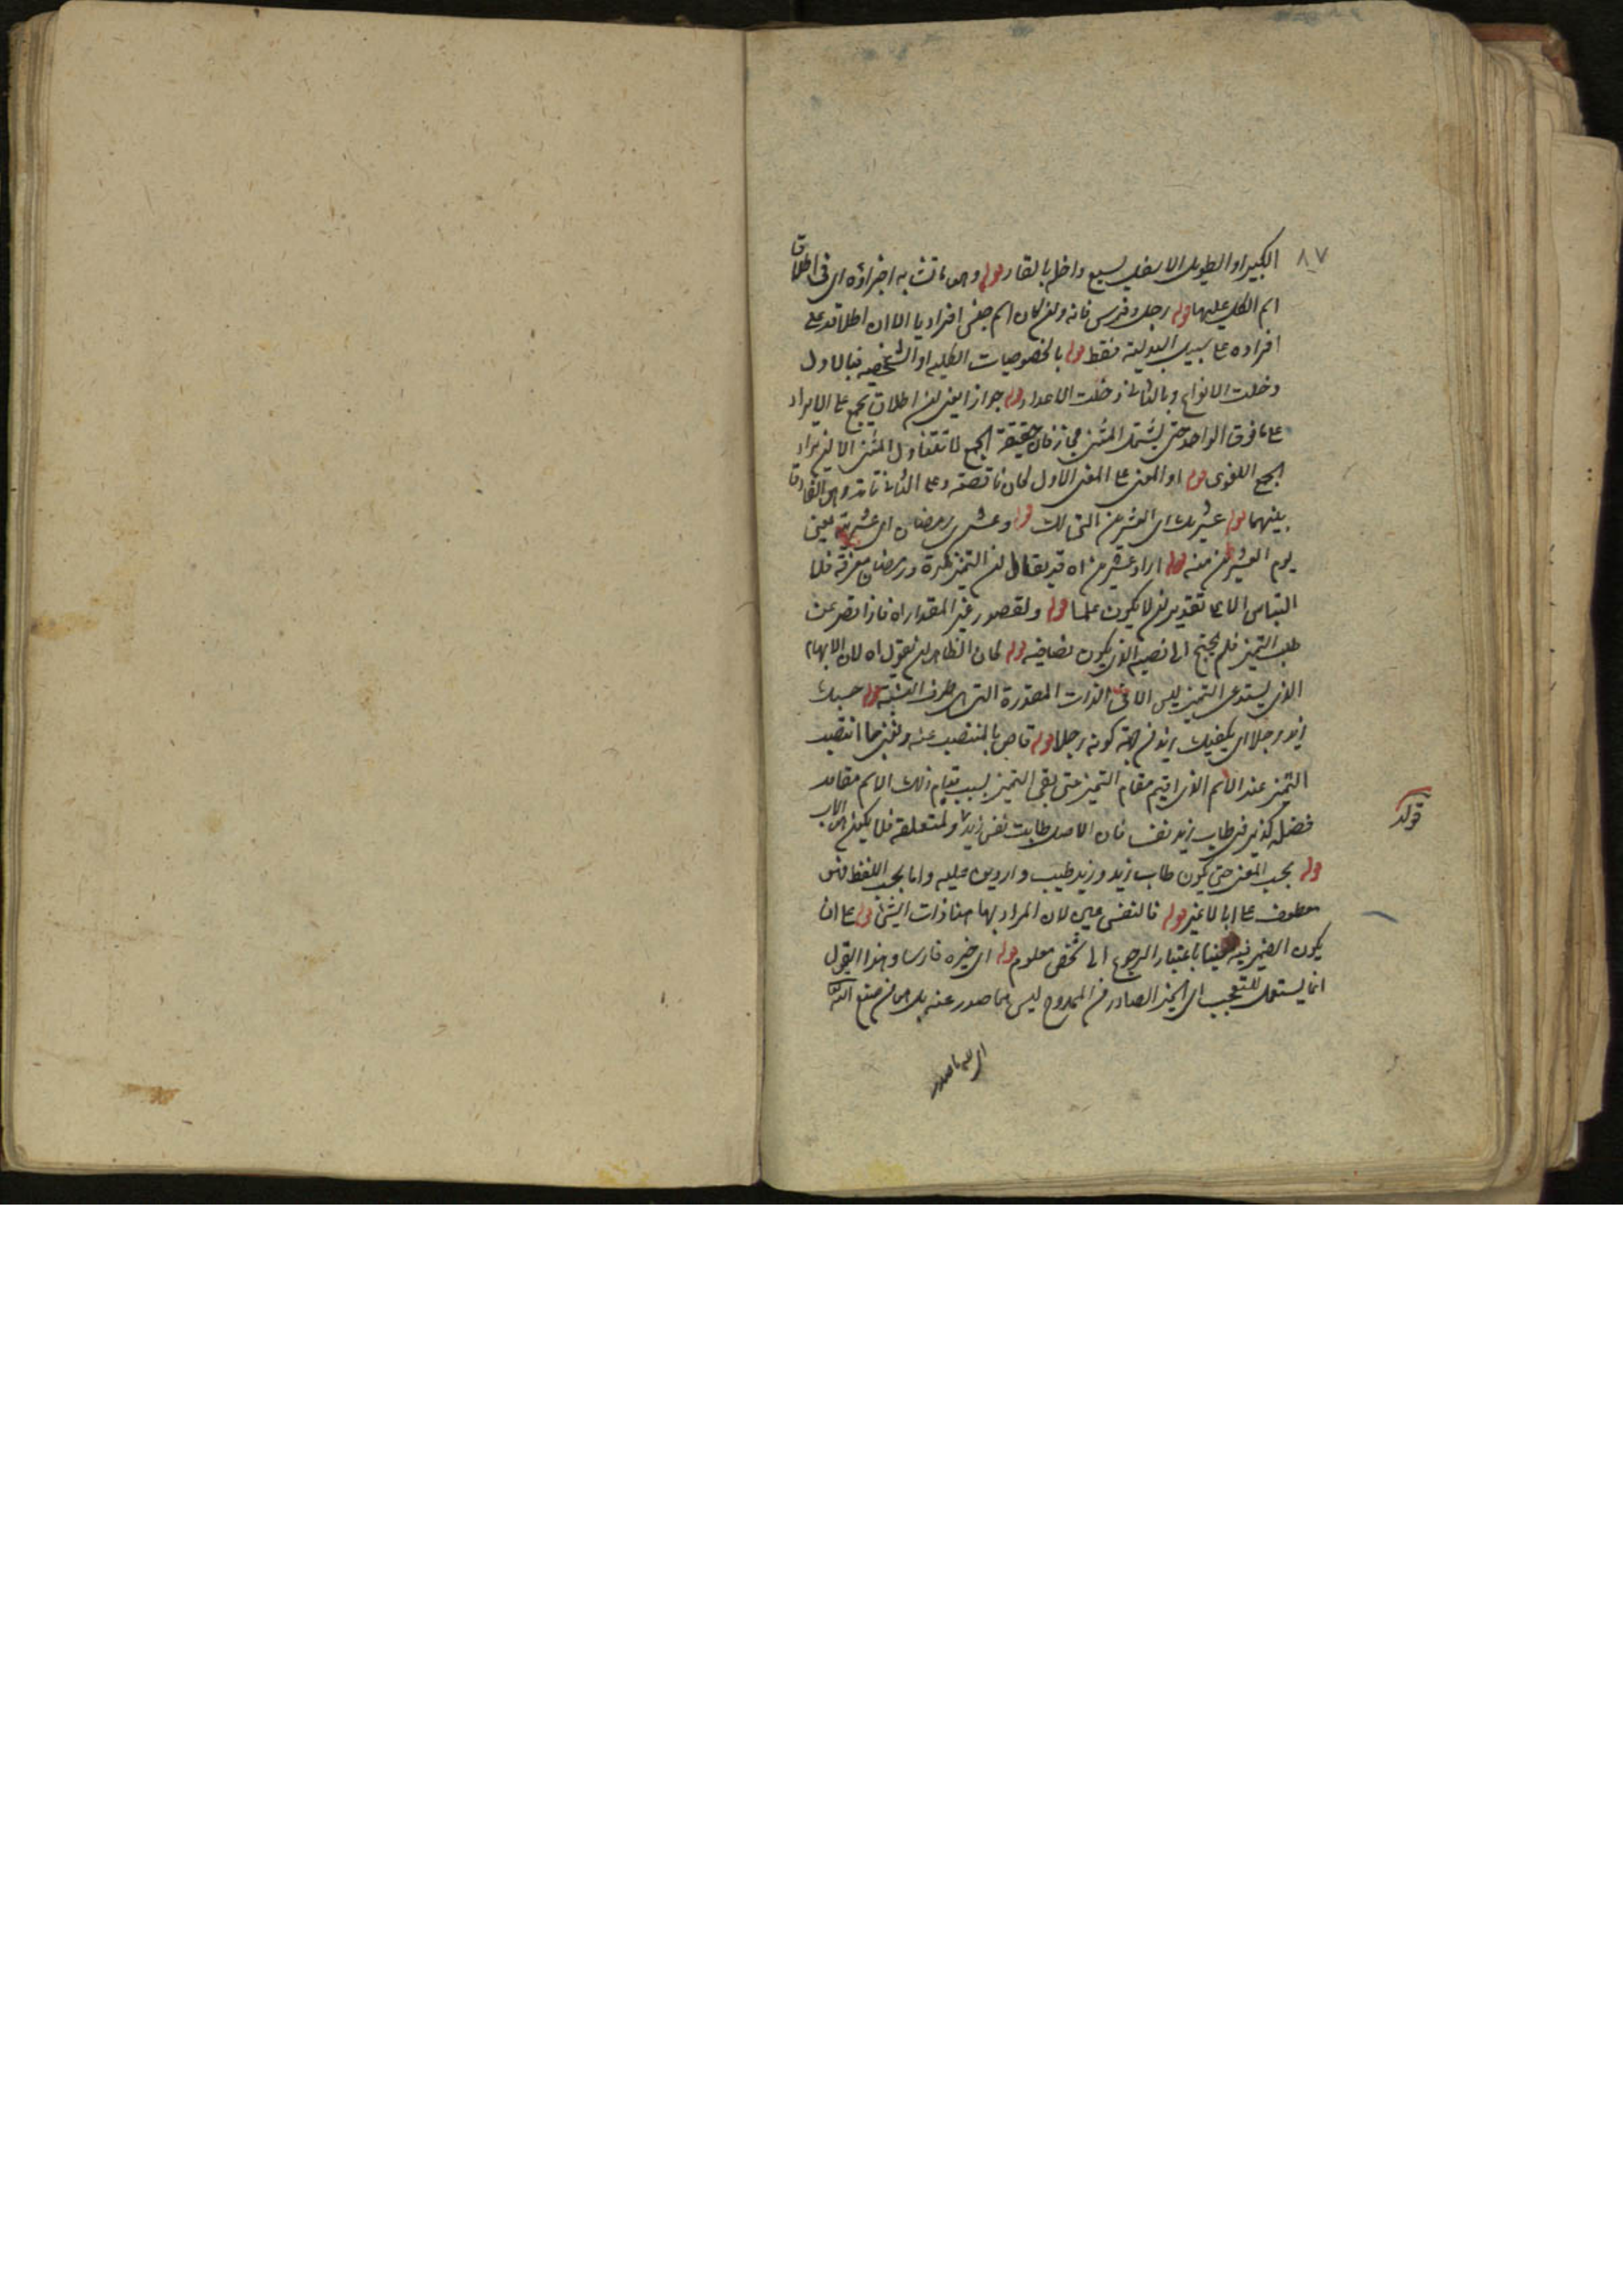 ٨٧
الكبير او الطويل الا سفل يسع داخله بالقار قوله وهو ما تشابه اجزاؤه اى فى اطلاق
اسم الكل عليها قوله رجل وفرس فانه وان كان اسم جنس افراديا الا ان اطلاقه على
افراده على سبيل البدلية فقط قوله بالخصوصيات الكلية او الشخصية فبالاول
دخلت الانواع وبالثانى دخلت الاعداد قوله جوازا يعنى ان اطلاق يجمع على الايراد
على ما فوق الواحد حتى يشمل المثنى مجاز فان حقيقة الجمع لا تتناول المثنى الا ان يراد
الجمع اللغوى قوله او المعنى على المعنى الاول كان ناقصة وعلى الثانى تامة وهو الفارق
بينهما قوله عشريك اى العشرين التى لك قوله وعشرى رمضان اى عشرية يعنى
يوم العشرين منه قوله اراد عشرين اه قد يقال ان التميز نكرة ورمضان معرفة فلا
التباس الا على تقدير ان لا يكون علما قوله ولقصور غير المقدار اه فاذا قصر عن
طلب التميز فلم يحتج الى نصبه الذى يكون نصا فيه قوله كان الظاهر ان يقول اه لان الابهام
الذى يستدعى التميز ليس الا فى الذات المقدرة التى هى طرف النسبة قوله حسبك
زيد رجلا اى يكفيك زيد من جهة كونه رجلا قوله خاص بالمنتصب عنه ونعنى بما انتصب
التميز عند الاسم الذى اقيم مقام التميز حتى بقى التميز بسبب قيام ذلك الاسم مقامه
فضلة كزيد فى طاب زيد نفسا فان الاصل طابت نفس زيد ولمتعلقه فلا يكون هو الاب
قوله بحسب المعنى حتى يكون طاب زيد وزيد طيب واردين عليه واما بحسب اللفظ فهو
معطوف على ابا لا غير قوله فالنفس عين لان المراد بها هنا ذات الشئ قوله على ان
يكون الضمير فيه معينا باعتبار الرجوع الى شخص معلوم قوله اى خيره فارسا وهذا القول
انما يستعمل للتعجب اى الخير الصادر من الممدوح ليس مما صدر عنه بل هو من صنع الله تعالى
اى لله ما صدر
قوله